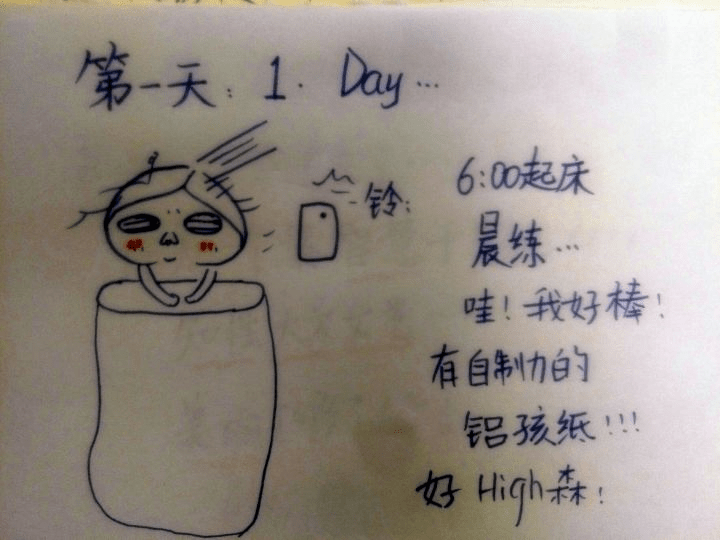 第一天：1. Day...
铃：
6:00起床
晨练...
哇！我好棒！
有自制力的
铝孩纸!!!
好High森！